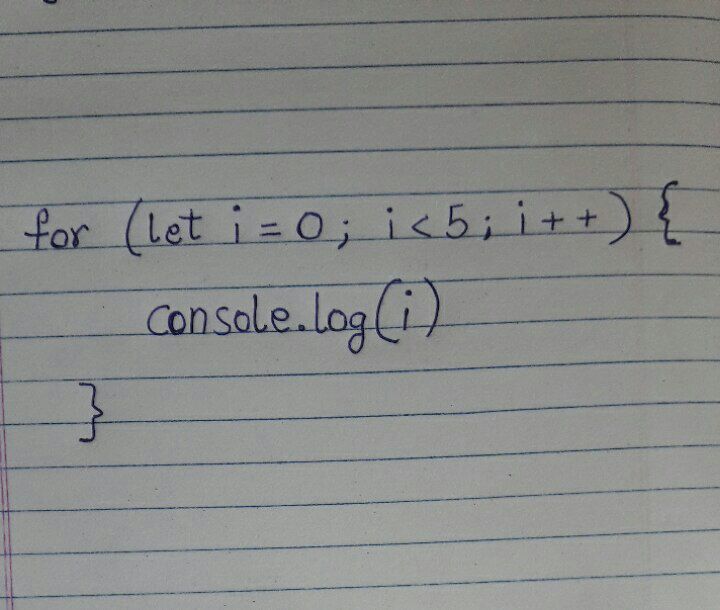 for (let i = 0; i < 5; i++) {
console.log(i)
}